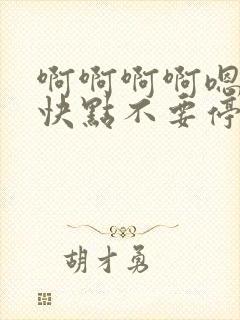 啊啊啊啊嗯
快點不要停
胡才勇